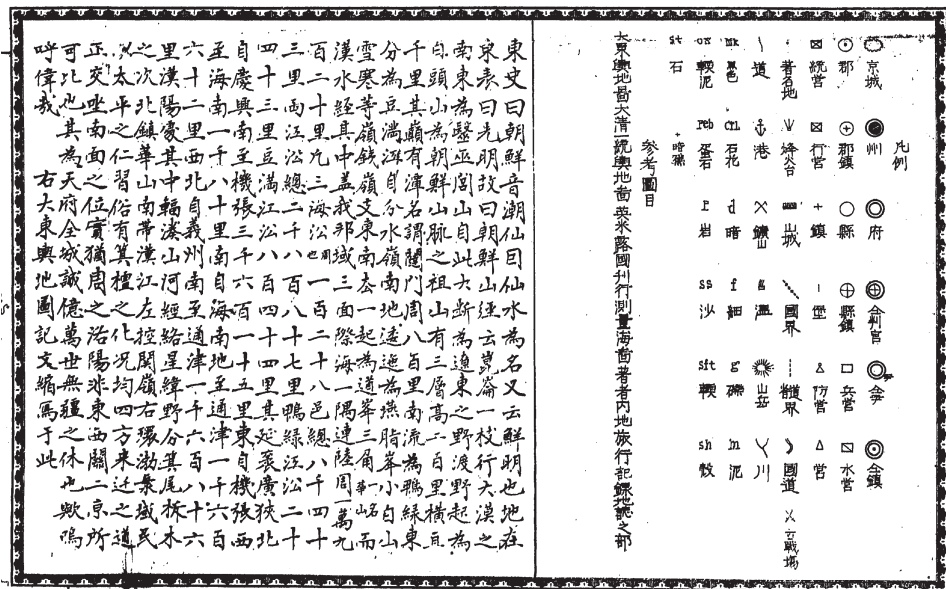 凡例
京城 州 府 仝判官 仝尹 仝鎭
郡 郡鎭 縣 縣鎭 兵營 水營
統營 行營 鎭 堡 防營 營
著名地 烽火台 山城 國界 道界 國道 古戰場
道 港 鑛山 温 山岳 川
mk 黒色 crl 石花 d 暗 f 細 g 礫 m 泥
oz 軟泥 peb 蛋石 r 岩 ss 沙 sft 軟 sh 殻
st 石
參考圖目
大東輿地啚大清一統輿地啚英米露國刊行測量海啚著者内地旅行記録地誌之部
東史曰朝鮮音潮仙因仙水為名又云鮮明也地在
東表曰先明故曰朝鮮山經云崑崙一枝行大漠之
南東為醫巫閭山自此大断為遼東之野渡野起為
白頭山為朝鮮山脈之祖山有三層高二百里橫亘
千里其巔有潭名謂闥門周八百里南流為鴨綠東
分為豆滿洋自分水嶺南地逶迤為燕脂峯小白山
雪寒等嶺鉄嶺支東南去一起為道峯三角華山而
漢水經其中盖我邦域三面際海一隅連陸周一萬九
百二十里凡三海沿周也一百二十八邑總八千四十
三里兩江沿總二千八百八十七里鴨綠江沿二千
四十三里豆滿江沿八百四十四里其延袤廣狹北
自慶興南至機張三千六百一十五里東自機張西
至海南一千八十里南自海南地至通津一千六百
六十二里西北自義州南至通津一千六百八十六
里漢陽處其中輻湊山河經絡星緯野分其尾析木
之次北鎭華山南帶漢江左控関嶺右環渤域民
以太平之仁習俗有箕檀之化況均四方来迁之道
正交坐南面之位實猶周之洛陽非東西關二京所
可比也其為天府金城誠億萬世無疆之休也歟嗚
呼偉哉 右大東輿地圖記文縮寫于此